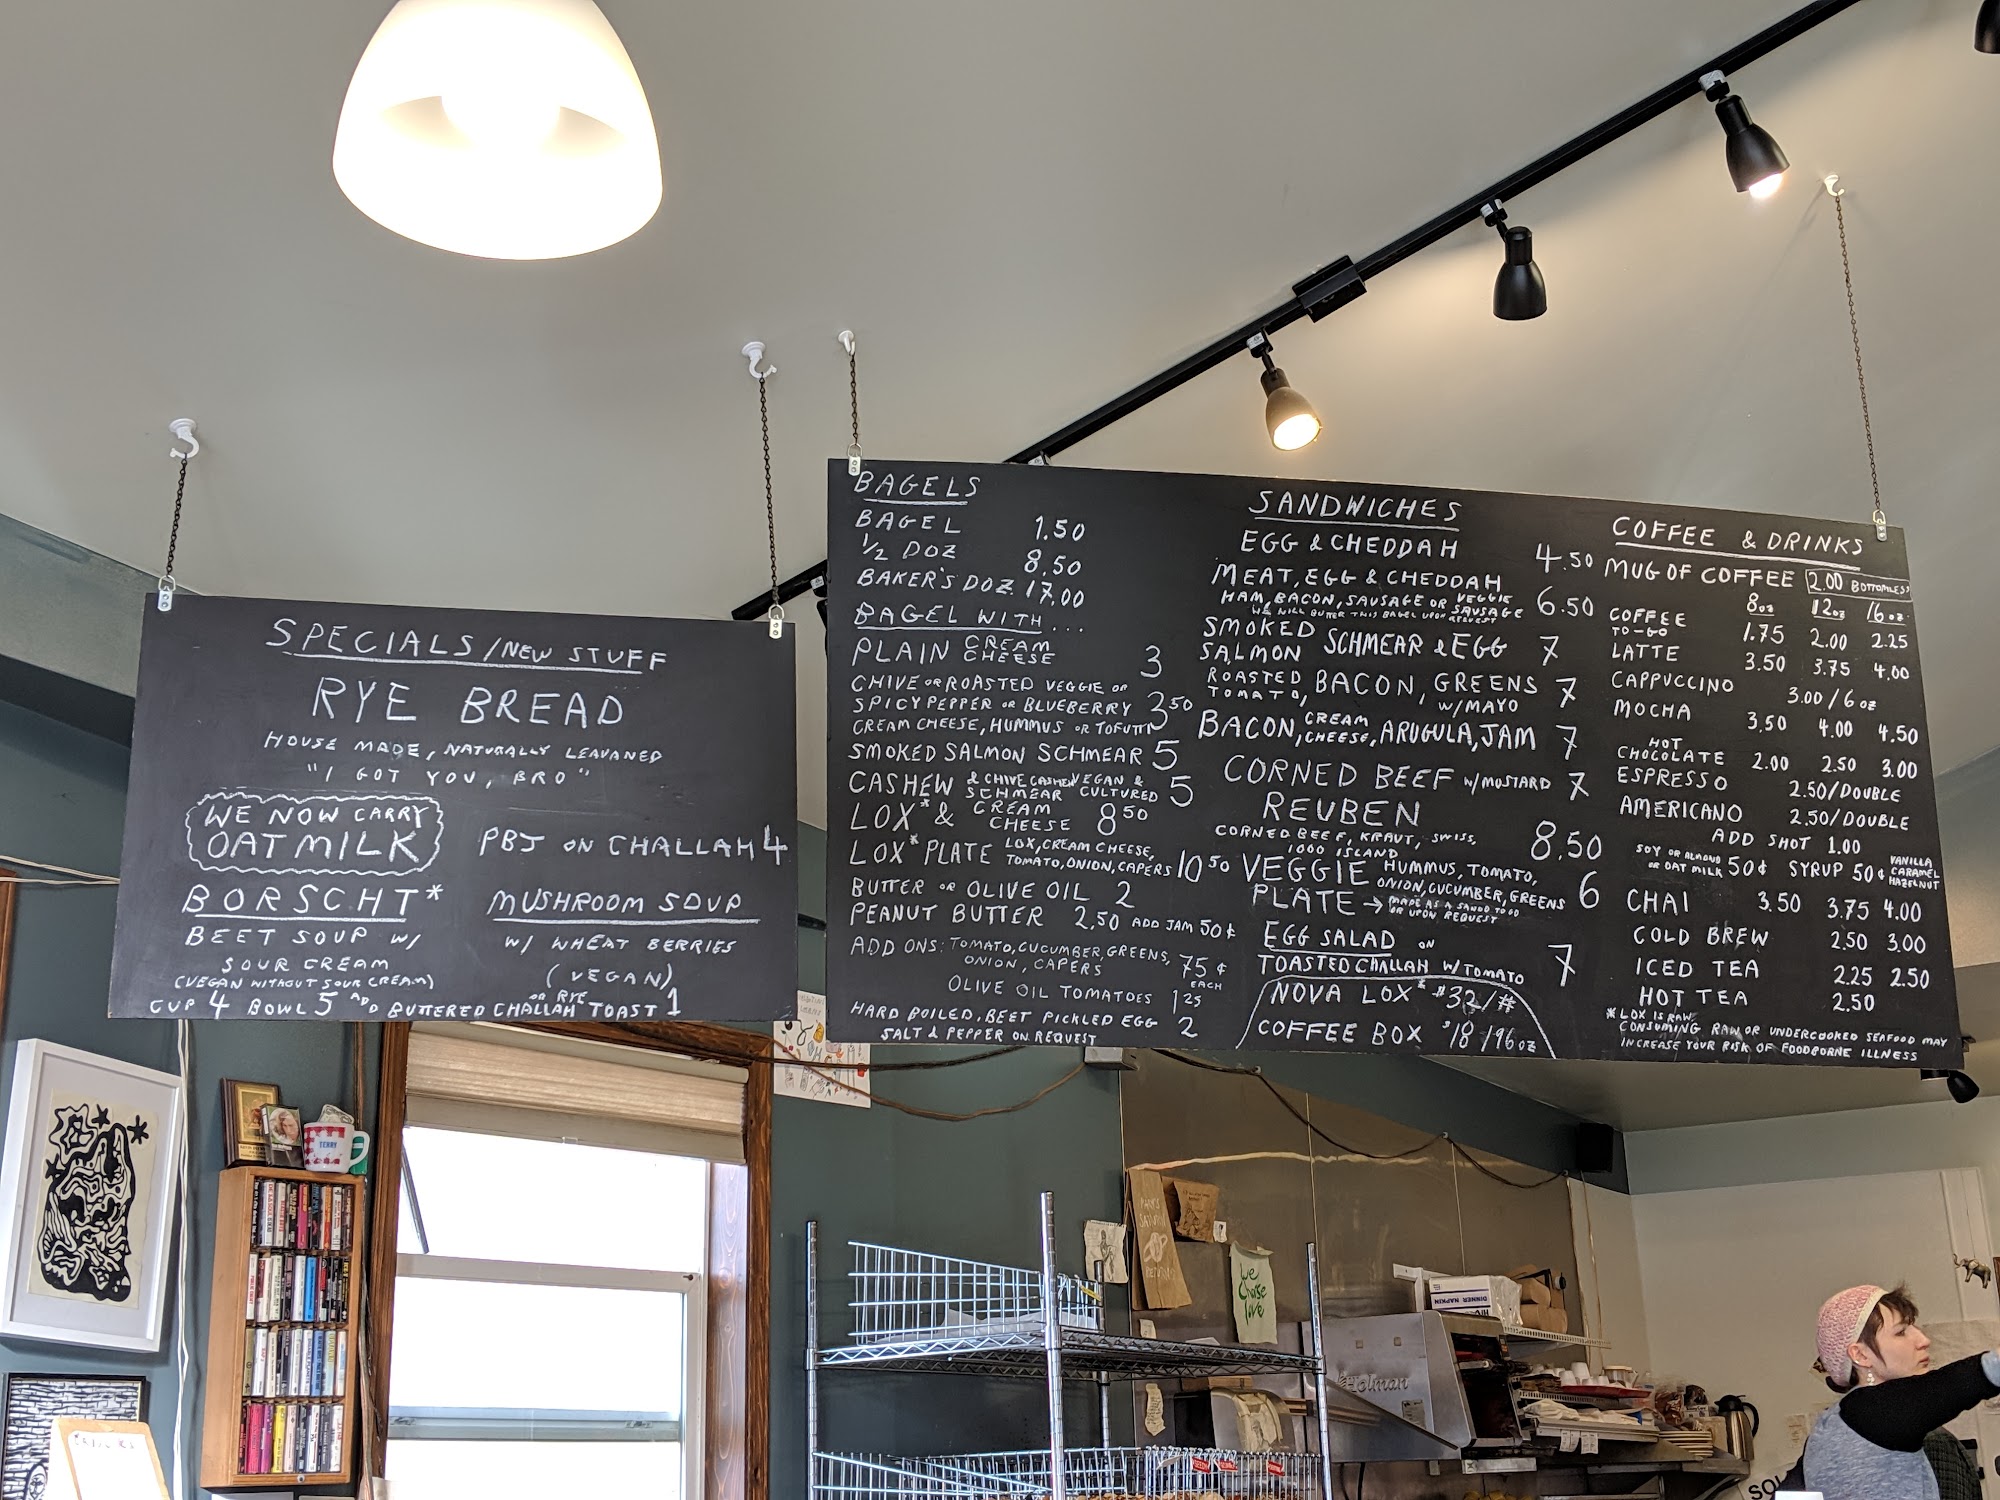 SPECIALS/NEW STUFF
RYE BREAD
HOUSE MADE, NATURALLY LEAVANED
"I GOT YOU, BRO"
WE NOW CARRY
OATMILK
PBJ ON CHALLAH 4
BORSCHT*
BEET SOUP W/
SOUR CREAM
(VEGAN WITHOUT SOUR CREAM)
MUSHROOM SOUP
W/ WHEAT BERRIES
(VEGAN)
CUP 4 BOWL 5 ADD BUTTERED CHALLAH OR RYE TOAST 1
BAGELS
BAGEL 1.50
1/2 DOZ 8.50
BAKER'S DOZ. 17.00
BAGEL WITH...
PLAIN CREAM CHEESE 3
CHIVE OR ROASTED VEGGIE OR
SPICY PEPPER OR BLUEBERRY 3.50
CREAM CHEESE, HUMMUS OR TOFUTTI
SMOKED SALMON SCHMEAR 5
CASHEW & CHIVE CASHEW SCHMEAR VEGAN & CULTURED 5
LOX* & CREAM CHEESE 8.50
LOX* PLATE LOX, CREAM CHEESE, TOMATO, ONION, CAPERS 10.50
BUTTER OR OLIVE OIL 2
PEANUT BUTTER 2.50 ADD JAM 50¢
ADD ONS: TOMATO, CUCUMBER, GREENS, ONION, CAPERS 75¢ EACH
OLIVE OIL TOMATOES 1.25
HARD BOILED, BEET PICKLED EGG 2
SALT & PEPPER ON REQUEST
SANDWICHES
EGG & CHEDDAH 4.50
MEAT, EGG & CHEDDAH 6.50
HAM, BACON, SAUSAGE OR VEGGIE SAUSAGE
WE WILL BUTTER THIS BAGEL UPON REQUEST
SMOKED SALMON SCHMEAR & EGG 7
ROASTED TOMATO, BACON, GREENS W/MAYO 7
BACON, CREAM CHEESE, ARUGULA, JAM 7
CORNED BEEF W/MUSTARD 7
REUBEN 8.50
CORNED BEEF, KRAUT, SWISS,
1000 ISLAND
VEGGIE PLATE HUMMUS, TOMATO, ONION, CUCUMBER, GREENS 6
→ MADE AS A SANDO TO GO OR UPON REQUEST
EGG SALAD ON
TOASTED CHALLAH W/ TOMATO 7
NOVA LOX* $32/#
COFFEE BOX $18/96oz
COFFEE & DRINKS
MUG OF COFFEE 2.00 BOTTOMLESS
8oz 12oz 16oz
COFFEE TO-GO 1.75 2.00 2.25
LATTE 3.50 3.75 4.00
CAPPUCCINO 3.00/6oz
MOCHA 3.50 4.00 4.50
HOT CHOCOLATE 2.00 2.50 3.00
ESPRESSO 2.50/DOUBLE
AMERICANO 2.50/DOUBLE
ADD SHOT 1.00
SOY OR ALMOND OR OAT MILK 50¢ SYRUP 50¢ VANILLA CARAMEL HAZELNUT
CHAI 3.50 3.75 4.00
COLD BREW 2.50 3.00
ICED TEA 2.25 2.50
HOT TEA 2.50
* LOX IS RAW
CONSUMING RAW OR UNDERCOOKED SEAFOOD MAY
INCREASE YOUR RISK OF FOODBORNE ILLNESS
TERRY
We
Choose
love
DINNER NAPKIN
Holman